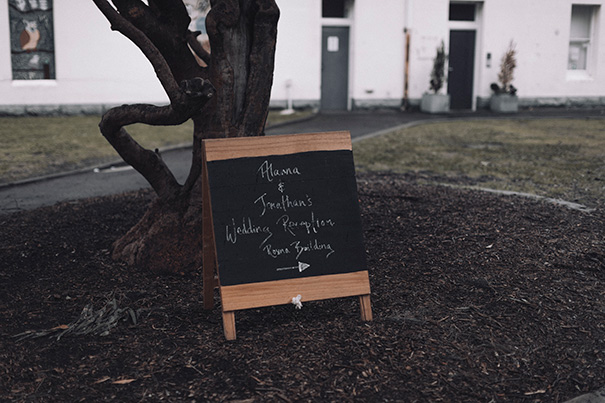 Alanna
&
Jonathan's
Wedding Reception
Round Building